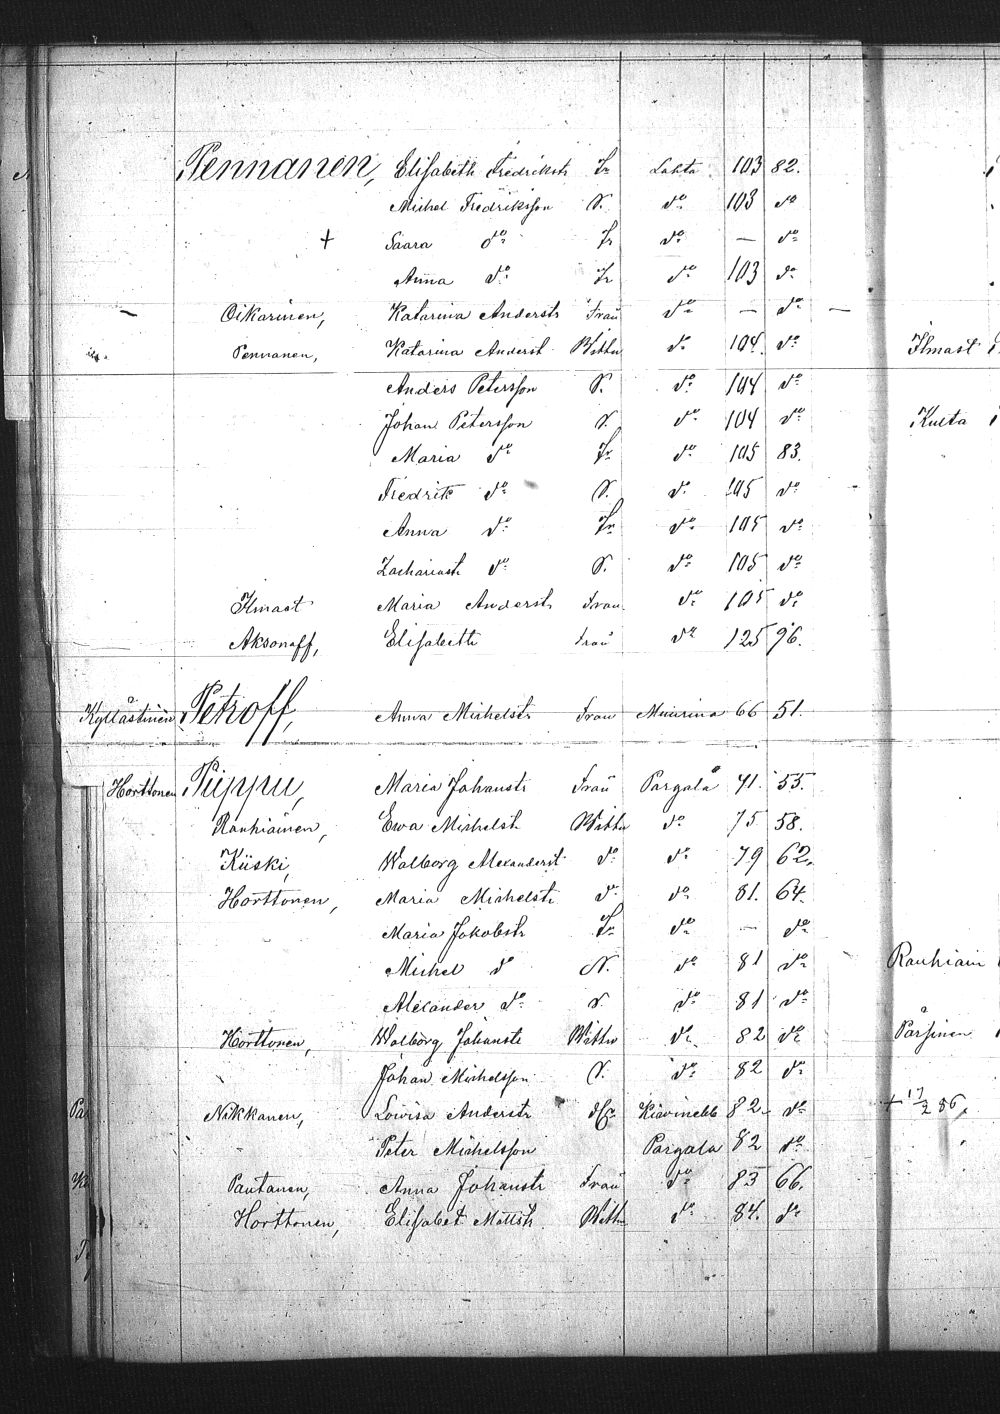 Pennanen, Elisabeth Fredrikstr Jr Lahta 103 82.
Michel Fredriksson S. do 103 do
+ Saara do Jr do — do
Anna do Jr do 103 do
— Oikarinen, Katarina Anderstr Frau do — do —
Pennanen, Katarina Anderst Wittw do 104. do Ilmast
Anders Petersson S. do 104 do
Johan Petersson S. do 104 do Kulta
Maria do Jr do 105 83.
Fredrik do S. do 105 do
Anna do Jr do 105 do
Zachariast do S. do 105 do
Ilmast Maria Anderstr Frau do 105 do
Aksonoff, Elisabeth Frau do 125 96.
Kyllästinen Petroff, Anna Michelstr Frau Muurina 66 51.
Horttonen Piippu, Maria Johanstr Frau Pargala 71. 55.
Rauhiainen, Ewa Michelst Wittw do 75 58.
Kiiski, Walborg Alexanderst do do 79 62.
Horttonen, Maria Michelstr do do 81. 64.
Maria Jakobstr Jr do — do
Michel do S. do 81 do Rauhiain
Alexander do S. do 81 do
Horttonen, Walborg Johanstr Wittw do 82 do Pärsinen
Johan Michelsson S. do 82 do
Nikkanen, Lowisa Anderstr Kiwinebb 82 do + 17/2 86,
Peter Michelsson Pargala 82 do
Pautanen, Anna Johanstr Frau do 83 66.
Horttonen, Elisabet Mattstr Wittw do 84. do